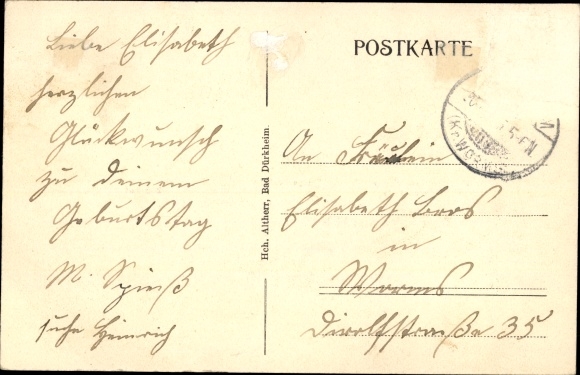 Liebe Elisabeth
herzlichen
Glückwunsch
zu Deinem
Geburtstag
M. Spieß
siehe Heinrich
Hch. Altherr, Bad Dürkheim.
POSTKARTE
5-6N
(Kr. WORMS)
An Fräulein
Elisabeth Bros
in
Worms
Dirolfstraße 35